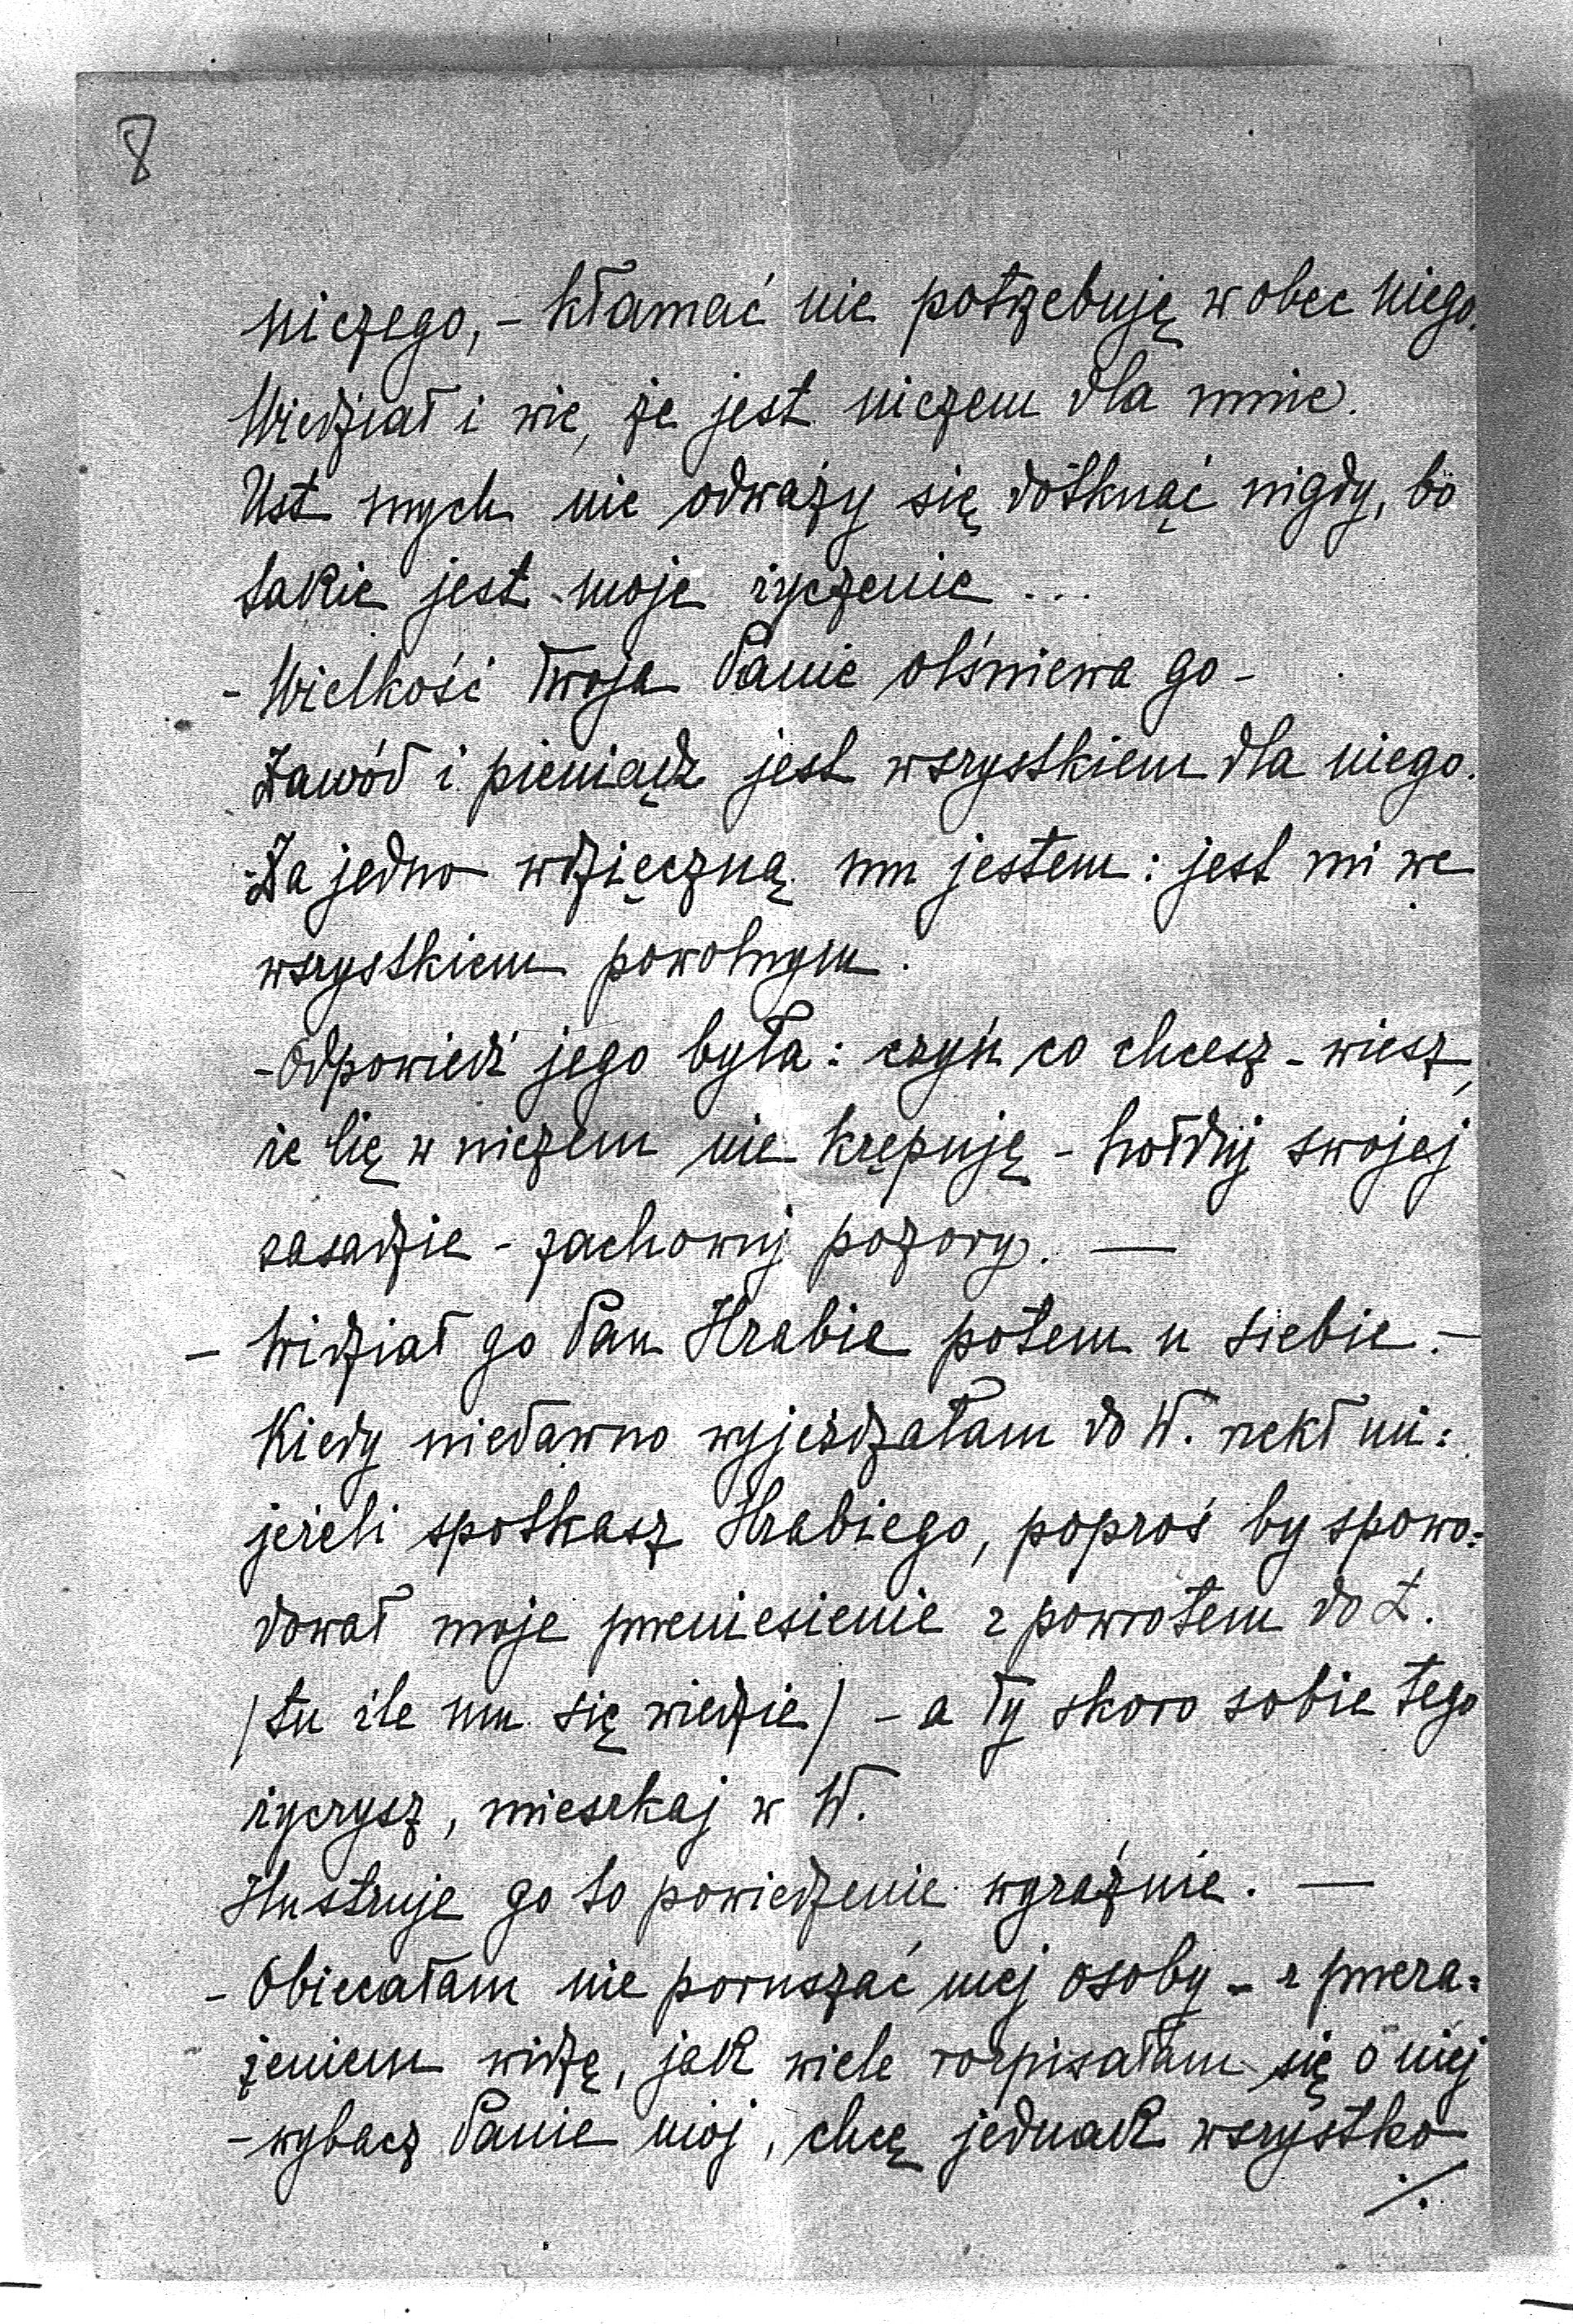 8
niczego, - kłamać nie potrzebuję wobec niego.
Wiedział i wie, że jest niczem dla mnie.
Ust mych nie odważy się dotknąć nigdy, bo
takie jest moje życzenie...
- Wielkość Twoja Panie olśniewa go -
Zawód i pieniądz jest wszystkiem dla niego.
- Za jedno wdzięczną mu jestem: jest mi we
wszystkiem powolnym.
- Odpowiedź jego była: czyń co chcesz - wiesz,
że cię w niczem nie krępuję - hołduj swojej
zasadzie - zachowuj pozory. —
- Widział go Pan Hrabia potem u siebie. -
Kiedy niedawno wyjeżdżałam do W. rzekł mi:
jeżeli spotkasz Hrabiego, poproś by spowo=
dował moje przeniesienie z powrotem do Ł.
/tu źle mu się wiedzie/ - a Ty skoro sobie tego
życzysz, mieszkaj w W.
Ilustruje go to powiedzenie wyraźnie. —
- Obiecałam nie poruszać mej osoby - z przera=
żeniem widzę, jak wiele rozpisałam się o niej
- wybacz Panie mój, chcę jednak wszystko
./.